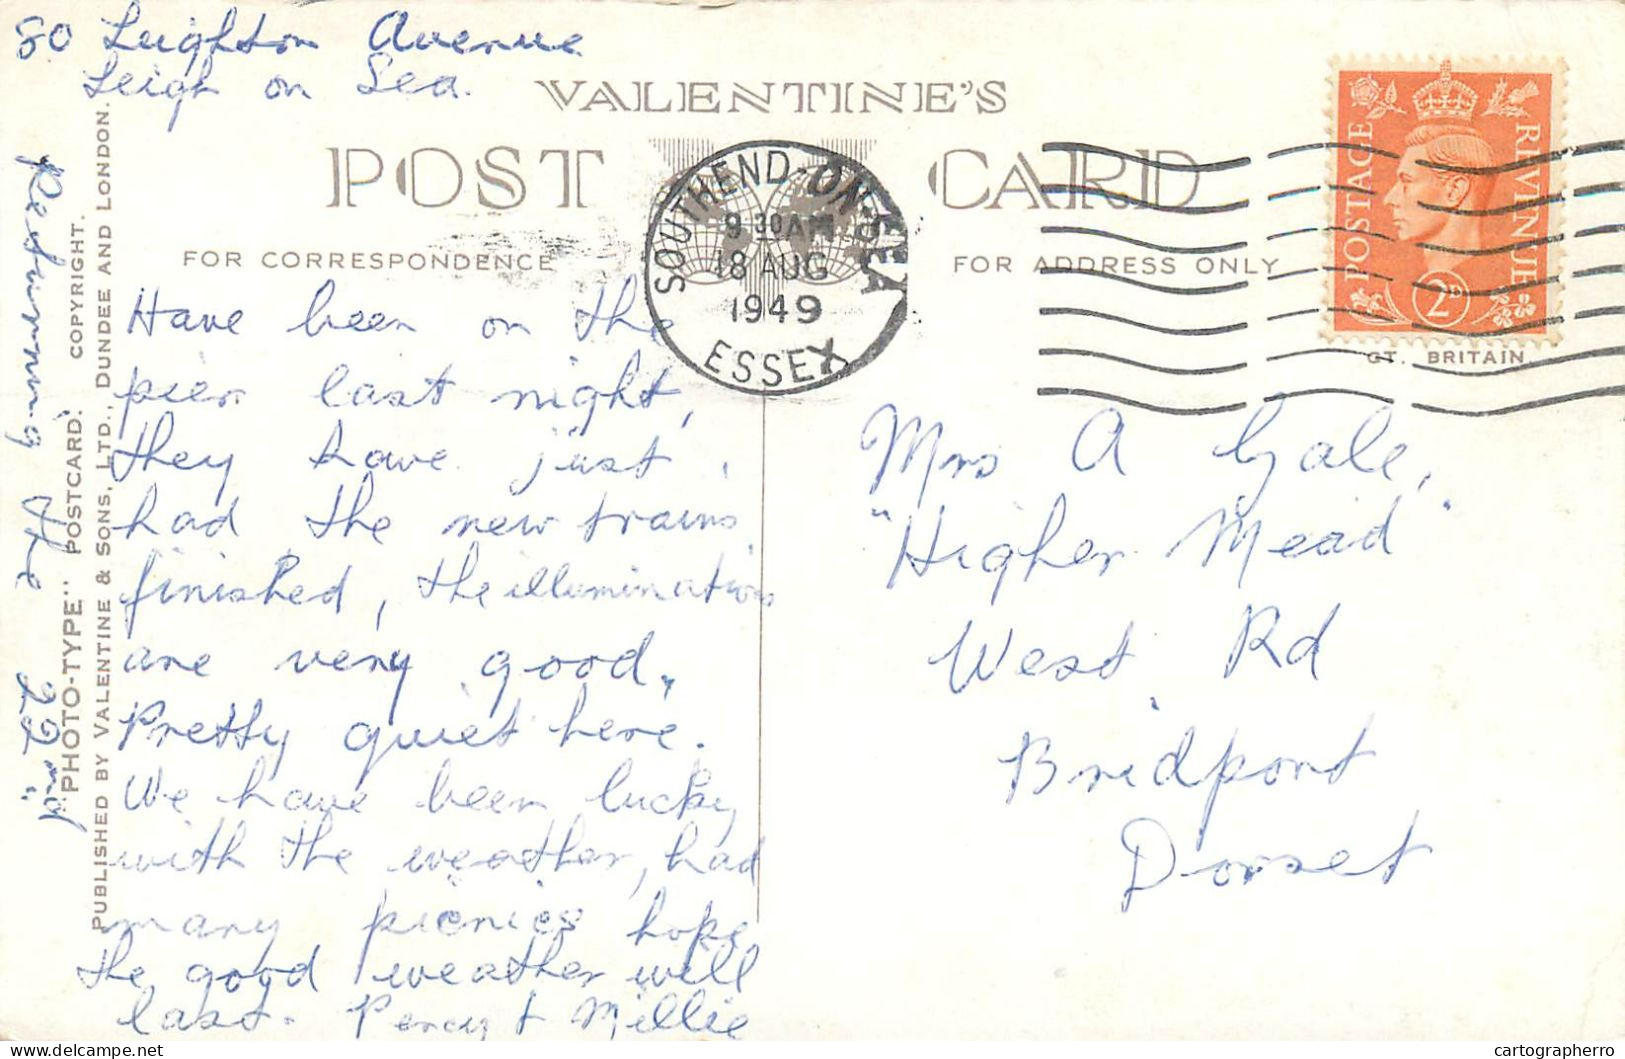 80 Leighton Avenue
Leigh on Sea.
VALENTINE'S
POST CARD
FOR CORRESPONDENCE
FOR ADDRESS ONLY
SOUTHEND-ON-SEA
9 30 AM
18 AUG
1949
ESSEX
POSTAGE
REVENUE
2D
GT. BRITAIN.
Have been on the
pier last night,
they have just
had the new trains
finished, the illuminations
are very good.
Pretty quiet here.
We have been lucky
with the weather, had
many picnics hope
the good weather will
last. Percy & Millie
Returning the 22nd
Mrs A Gale,
"Higher Mead"
West Rd
Bridport
Dorset
"PHOTO-TYPE" POSTCARD. COPYRIGHT.
PUBLISHED BY VALENTINE & SONS, LTD., DUNDEE AND LONDON.
delcampe.net
cartographerro